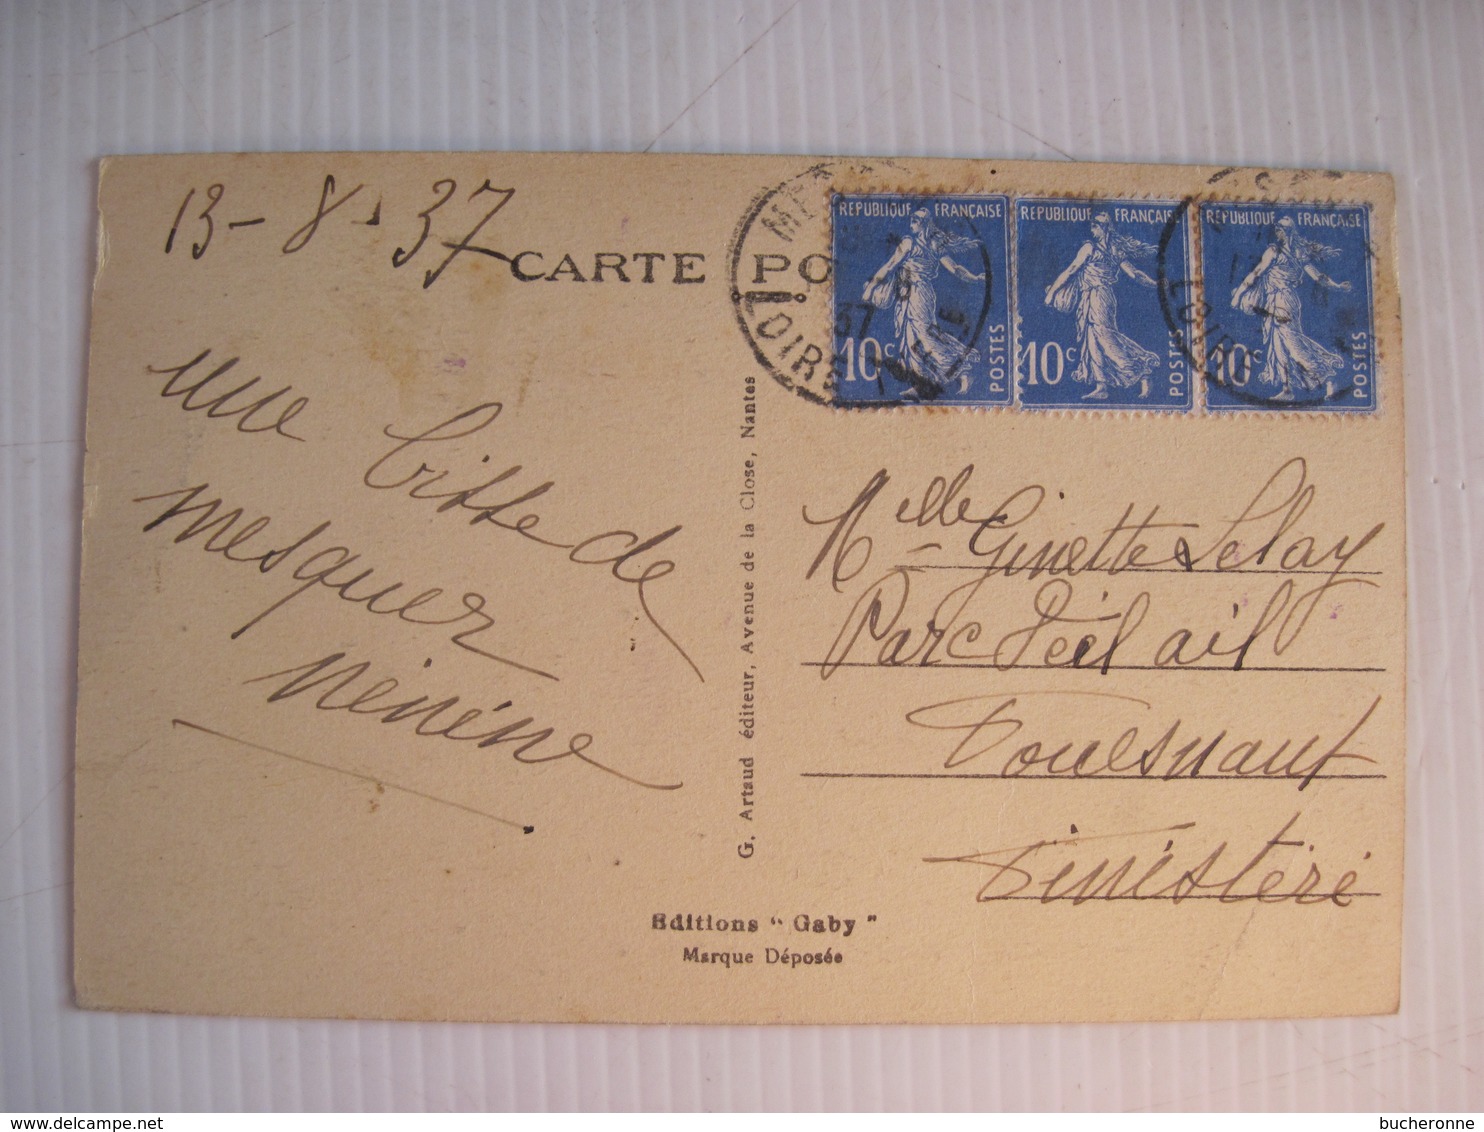 13-8-37
CARTE PO
MES
LOIRE INFRE
37
REPUBLIQUE FRANÇAISE
10c
POSTES
REPUBLIQUE FRANÇAISE
10c
POSTES
REPUBLIQUE FRANÇAISE
10c
POSTES
LOIRE
une bitte de
mesquer
Nénène
G. Artaud éditeur, Avenue de la Close, Nantes
Melle Ginette Lelay
Parc
Fouesnant
Finistère
Editions "Gaby"
Marque Déposée
www.delcampe.net
bucheronne